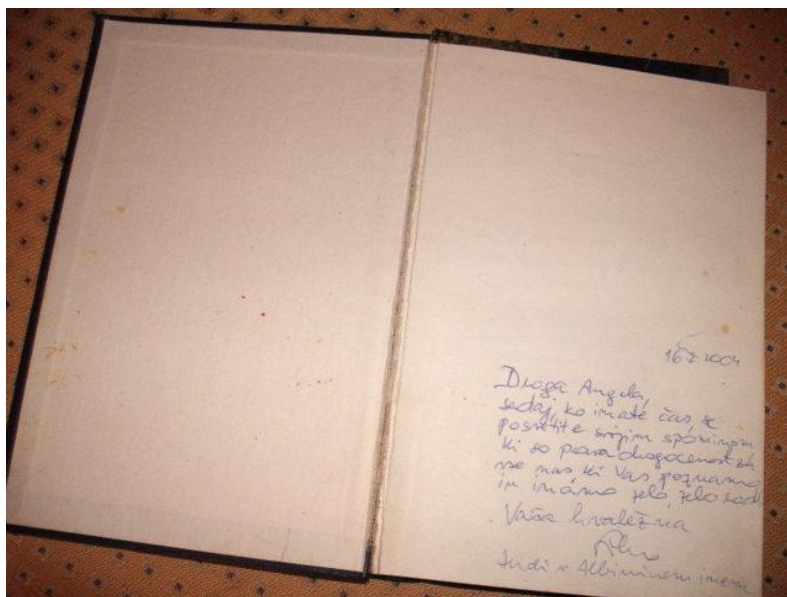 Draga Angela,
sedaj, ko imate čas, se
posvetite svojim spominom
ki so prava dragocenost za
vse nas ki Vas poznamo
in imamo zelo, zelo radi
Vaša hvaležna
tudi v Albininem imenu